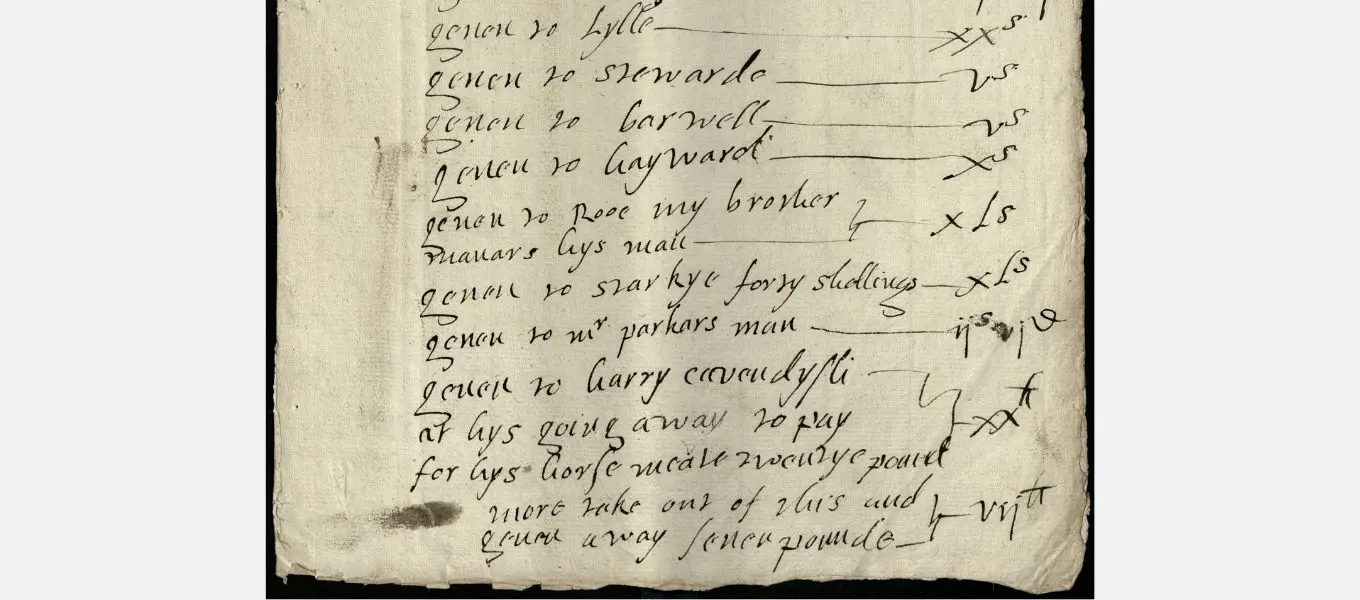 geven to Lylle xx s
geven to stewarde v s
geven to barwell v s
geven to hayward x s
geven to Rooe my brother
manars hys man xL s
geven to starkye forty shellings xL s
geven to mr parkars man ij s vj d
geven to harry cavendyssh
at hys going away to pay xx li
for hys horse meate twentye pound
more take out of this and vij li
geven away seven pounde